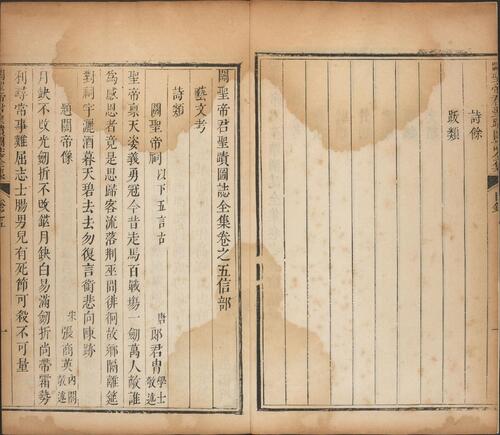 詩餘
跋類
關聖帝君聖蹟圖誌全集卷之五信部
藝文考
詩類
關聖帝祠 以下五言古 唐 郎君冑 學士敬進
聖帝稟天姿義勇冠今昔走馬百戰場一劒萬人敵誰
為感恩者竟是思歸客流落荆巫間徘徊故鄉隔離筵
對祠宇灑酒暮天碧去去勿復言銜悲向陳跡
題關帝像 宋 張商英 內閣敬進
月缺不改光劒折不改鋩月缺白易滿劒折尚帶霜勢
利尋常事難屈志士腸男兒有死節可殺不可量
卷之五
一